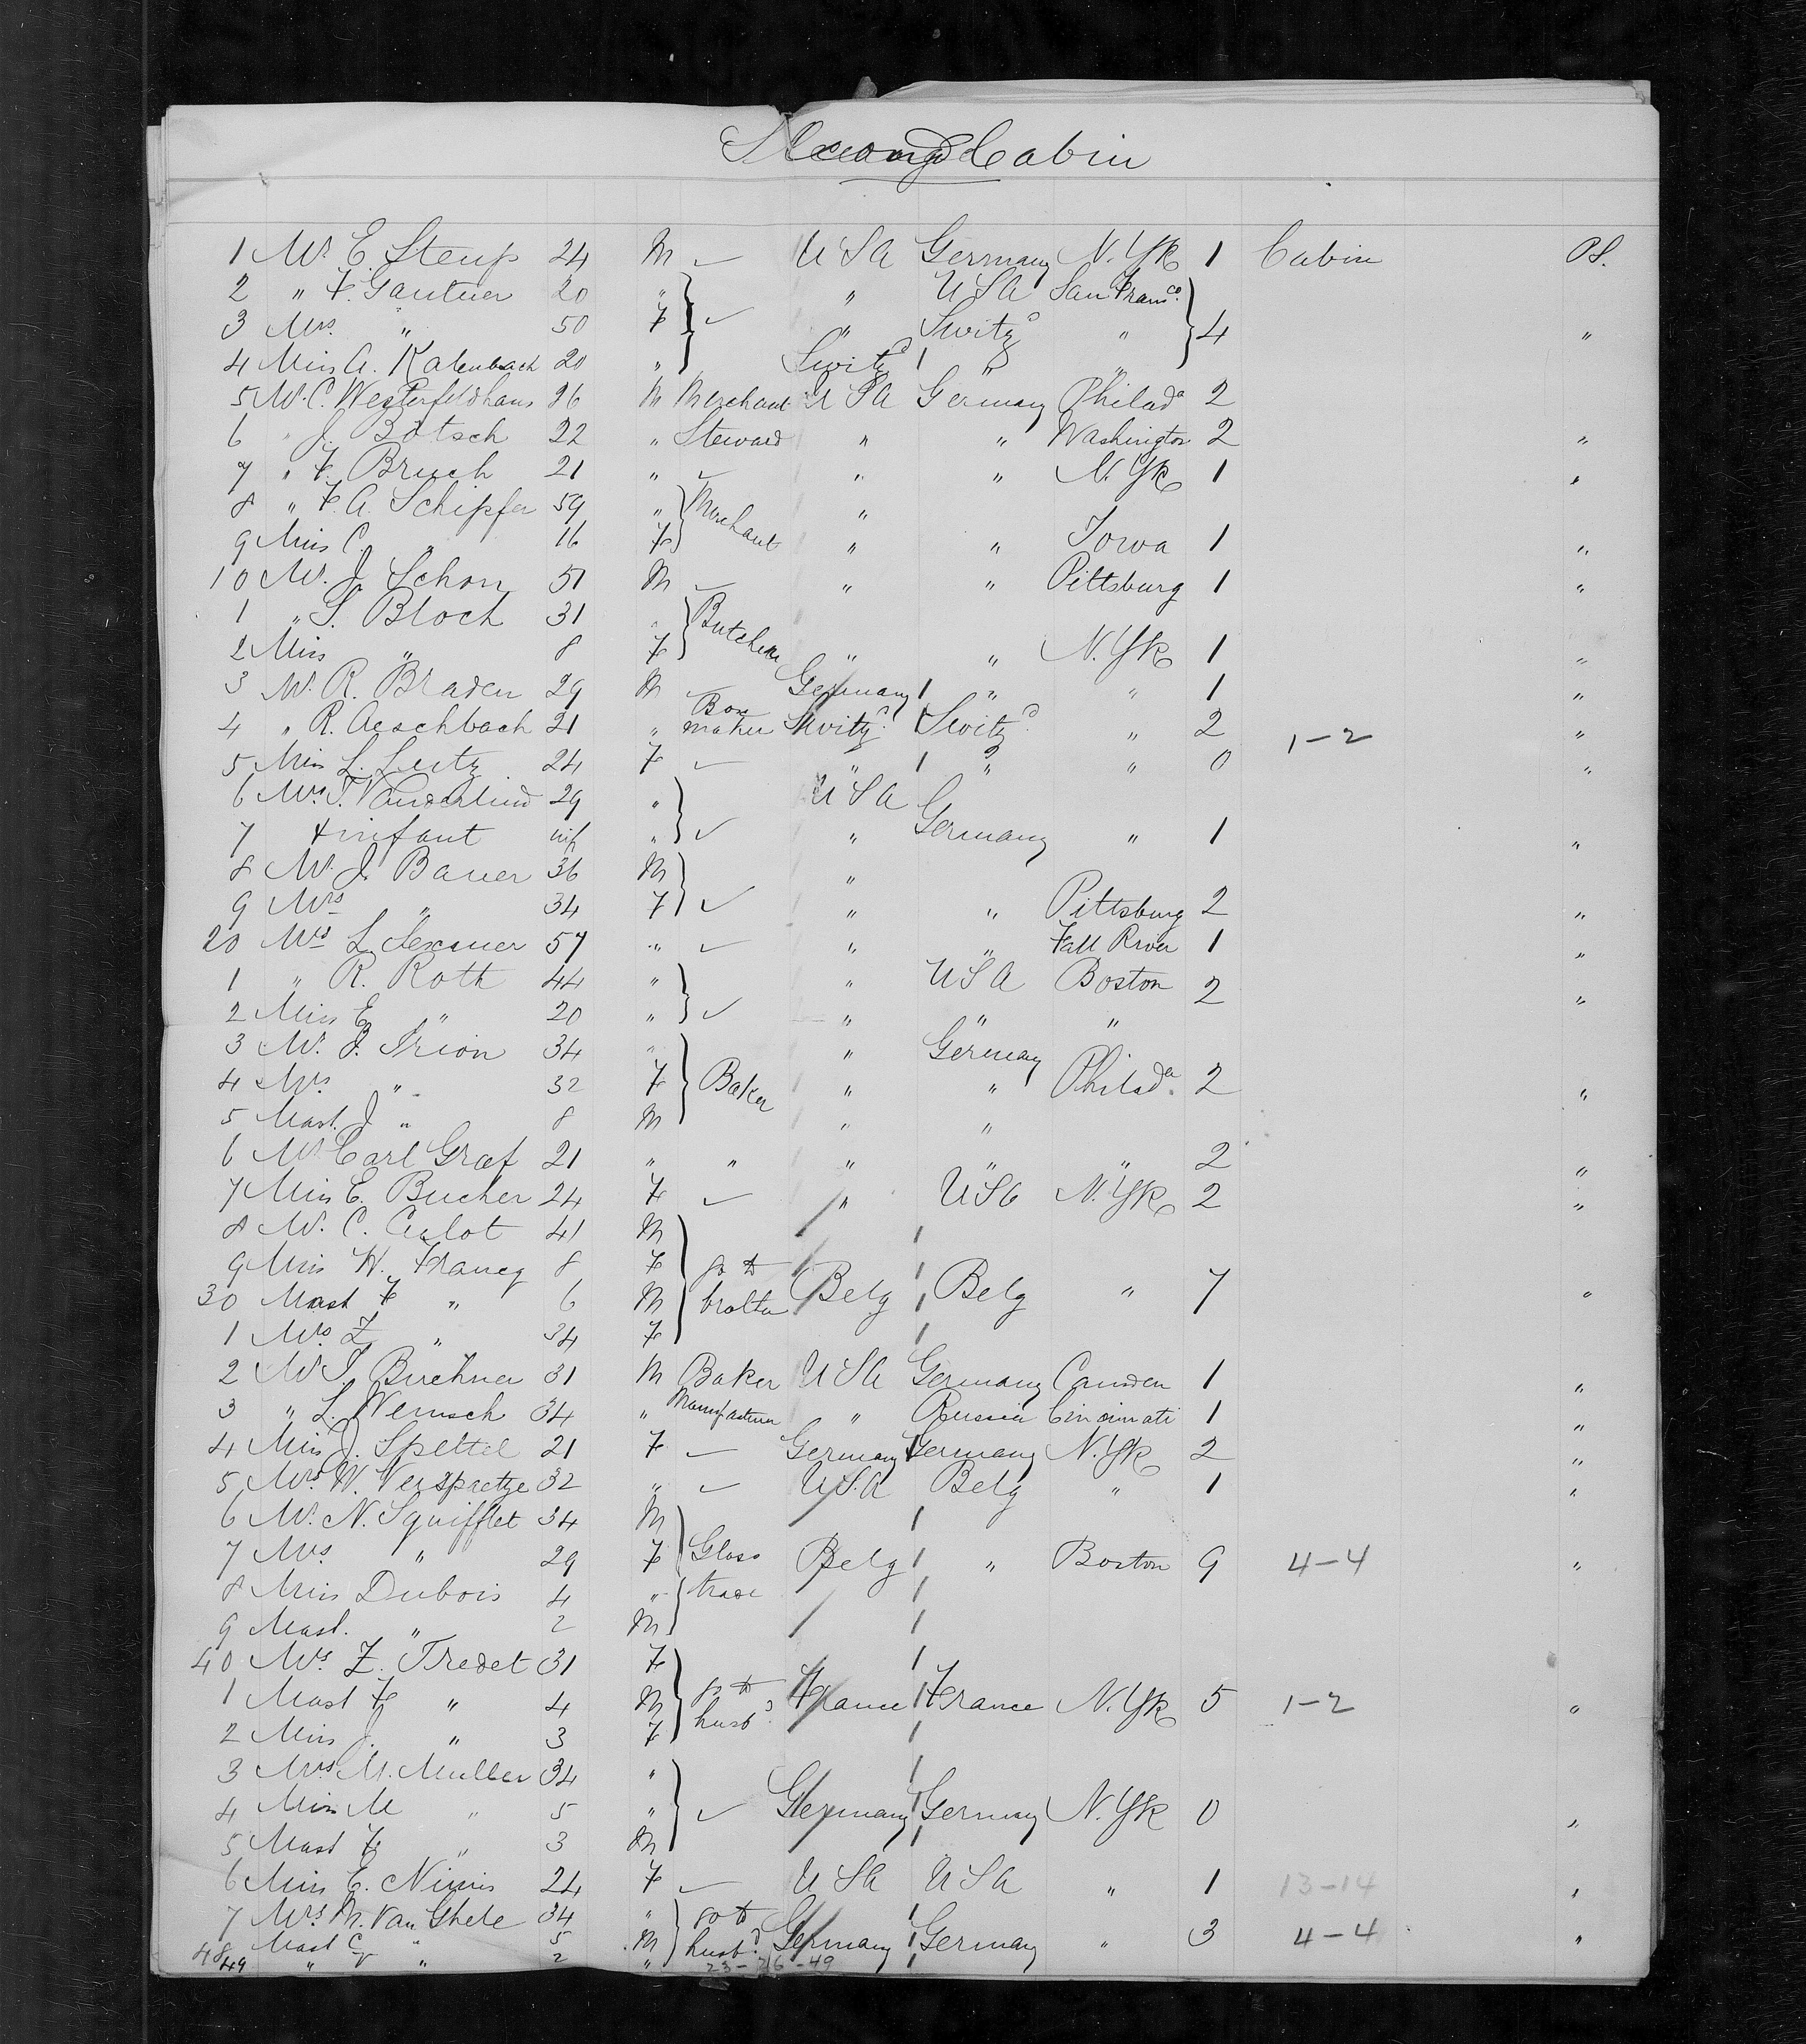 Second Cabin
1 Mr E. Steup 24 M ✓ USA Germany N. Yk 1 Cabin PS.
2 " F. Gautner 20 " " USA San Franco.
3 Mrs. " 50 F ✓ " Switzd " 4 "
4 Miss A. Kalenbach 20 " Switzd " "
5 Mr. C. Westerfeldhaus 26 M Merchant USA Germany Philada 2
6 " J. Botsch 22 " Steward " " Washington 2 "
7 " F. Bruch 21 " ✓ " " N. Yk 1 "
8 " F. A. Schipfer 59 " Merchant "
9 Miss C. " 16 F " " Iowa 1 "
10 Mr. J. Schon 51 M ✓ " " Pittsburg 1 "
1 " S. Bloch 31 " Butcher
2 Miss " 8 F " " N. Yk 1 "
3 Mr. R. Braden 29 M ✓ Germany " " 1 "
4 " R. Aeschbach 21 " Box maker Switzd. Switzd. " 2 1-2 "
5 Miss L. Lutz 24 F ✓ " " " 0 "
6 Mrs T. Vanderlind 29 " USA
7 + infant inf " ✓ " Germany " 1 "
8 Mr. J. Bauer 36 M "
9 Mrs " 34 F ✓ " " Pittsburg 2 "
20 Mrs L. 57 " ✓ " " Fall River 1 "
1 " R. Roth 44 " " USA Boston 2 "
2 Miss E " 20 " ✓ " " "
3 Mr. J. Irion 34 " " Germany
4 Mrs " 32 F Baker " " Philada. 2 "
5 Mast. J " 8 M " "
6 Mr Carl Graf 21 " " " " " 2 "
7 Miss E. Bucher 24 F ✓ " USA N. Yk 2 "
8 Mr. C. Culot 41 M
9 Miss H. Francq 8 F go to
30 Mast F " 6 M brother Belg Belg " 7 "
1 Mrs Z " 34 F
2 Mr J. Buehner 31 M Baker USA Germany Camden 1 "
3 " L. Wernsch 34 " Manufacturer " Russia Cincinnati 1 "
4 Miss J. Spettel 21 F ✓ Germany Germany N. Yk 2 "
5 Mrs W. Verspaetze 32 " ✓ U.S.A Belg " 1 "
6 Mr. N. Squifflet 34 M
7 Mrs " 29 F Glass Belg " Boston 9 4-4 "
8 Miss Dubois 4 " trade
9 Mast. " 2 M
40 Mrs. Z. Tredet 31 F
1 Mast F " 4 M go to France France N. Yk 5 1-2 "
2 Miss J. " 3 F husbd.
3 Mrs M. Muller 34 "
4 Miss M " 5 " ✓ Germany Germany N. Yk 0 "
5 Mast F " 3 M
6 Miss E. Nimis 24 F ✓ USA USA " 1 13-14 "
7 Mrs M. Van Ghele 34 " go to
48 Mast C " 5 M husbd. Germany Germany " 3 4-4 "
49 " V " 2 "
23-26-49